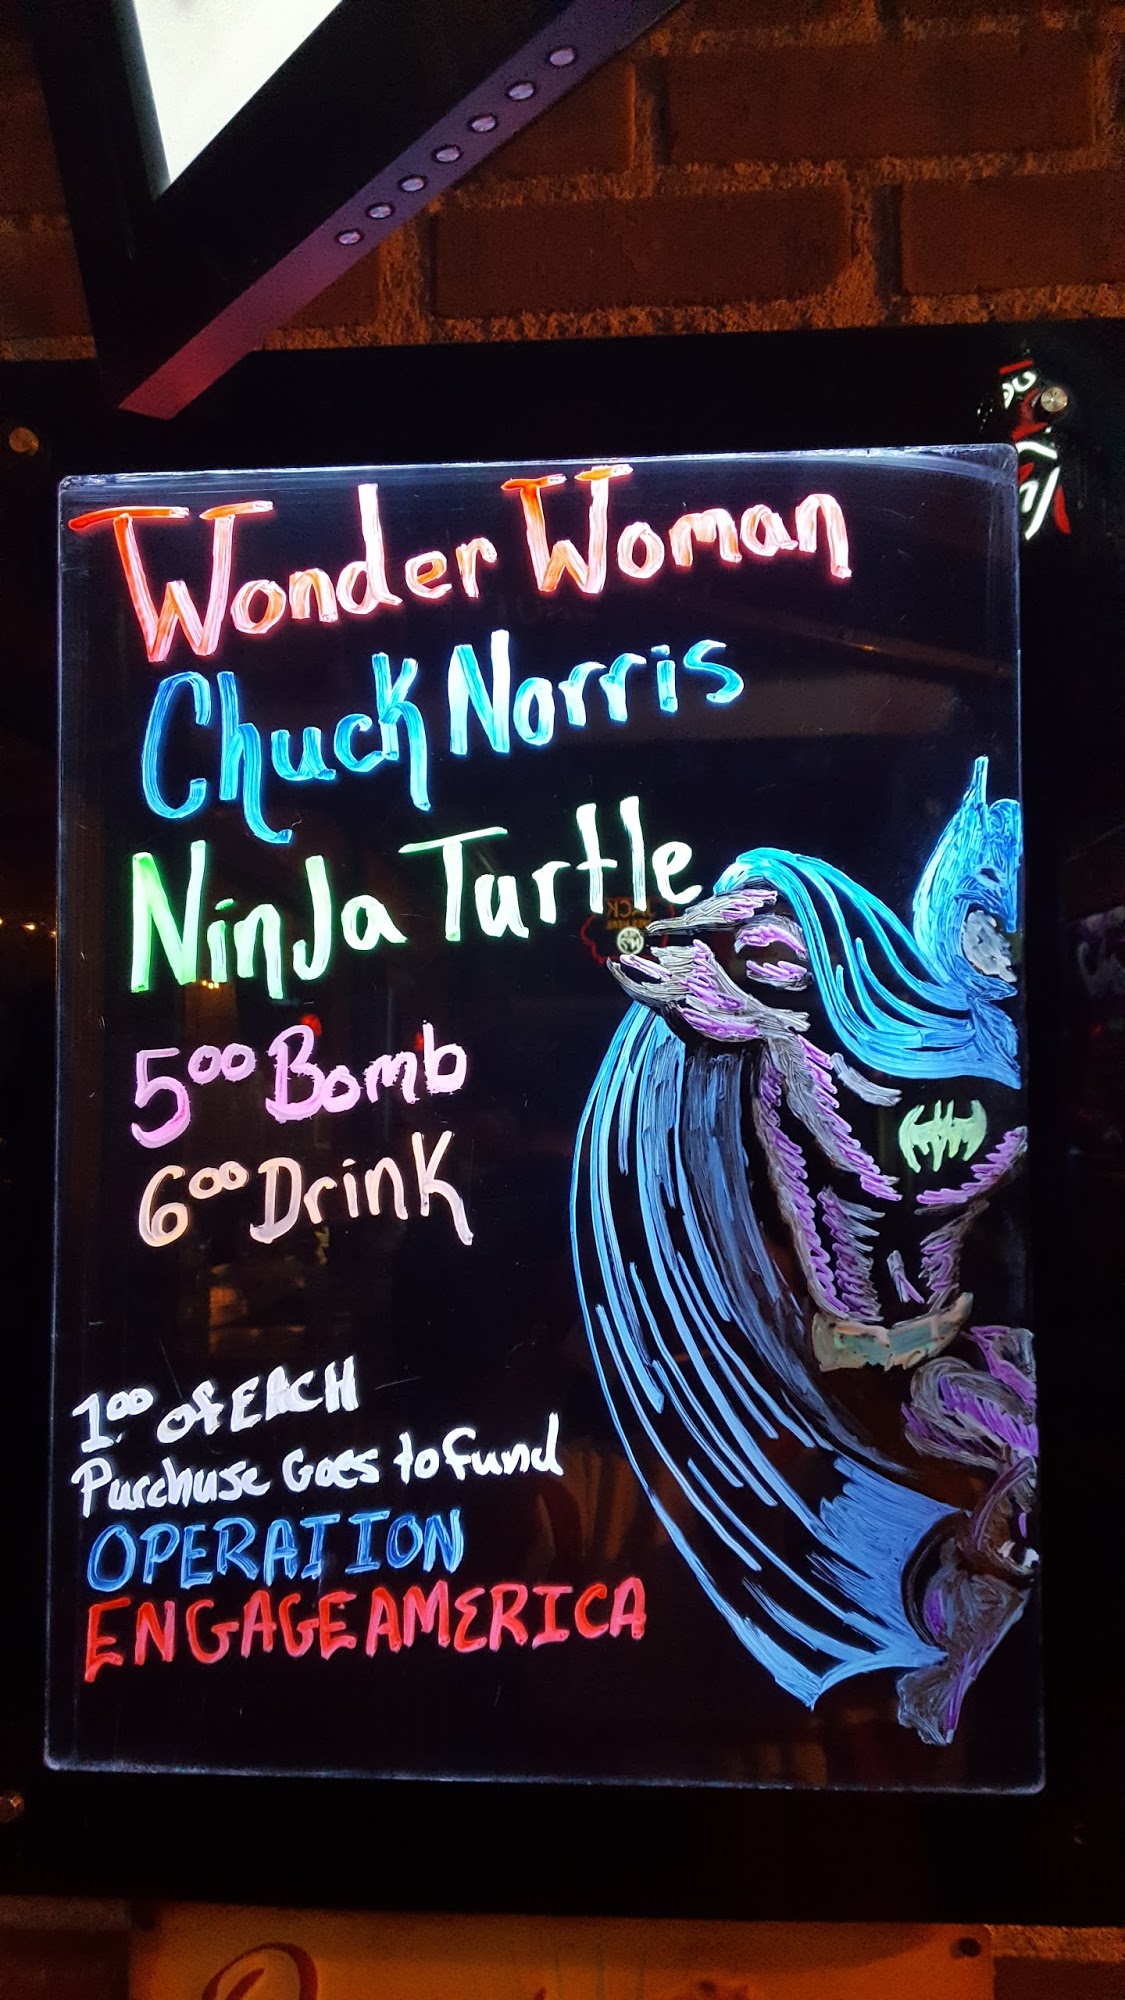 Wonder Woman
Chuck Norris
Ninja Turtle
5⁰⁰ Bomb
6⁰⁰ Drink
1⁰⁰ of EACH
Purchuse Goes to fund
OPERATION
ENGAGE AMERICA